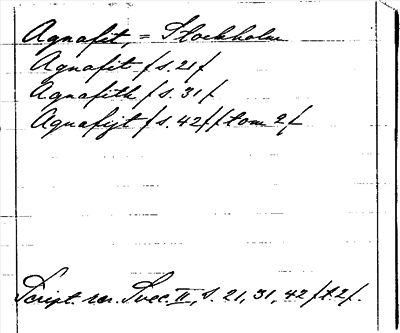 Agnafit, = Stockholm
Agnafit /s. 21/
Agnafith /s. 31/
Agnafijt /s. 42/ /tom 2/
Script. rer. Svec. II, s. 21, 31, 42 /t. 2/.